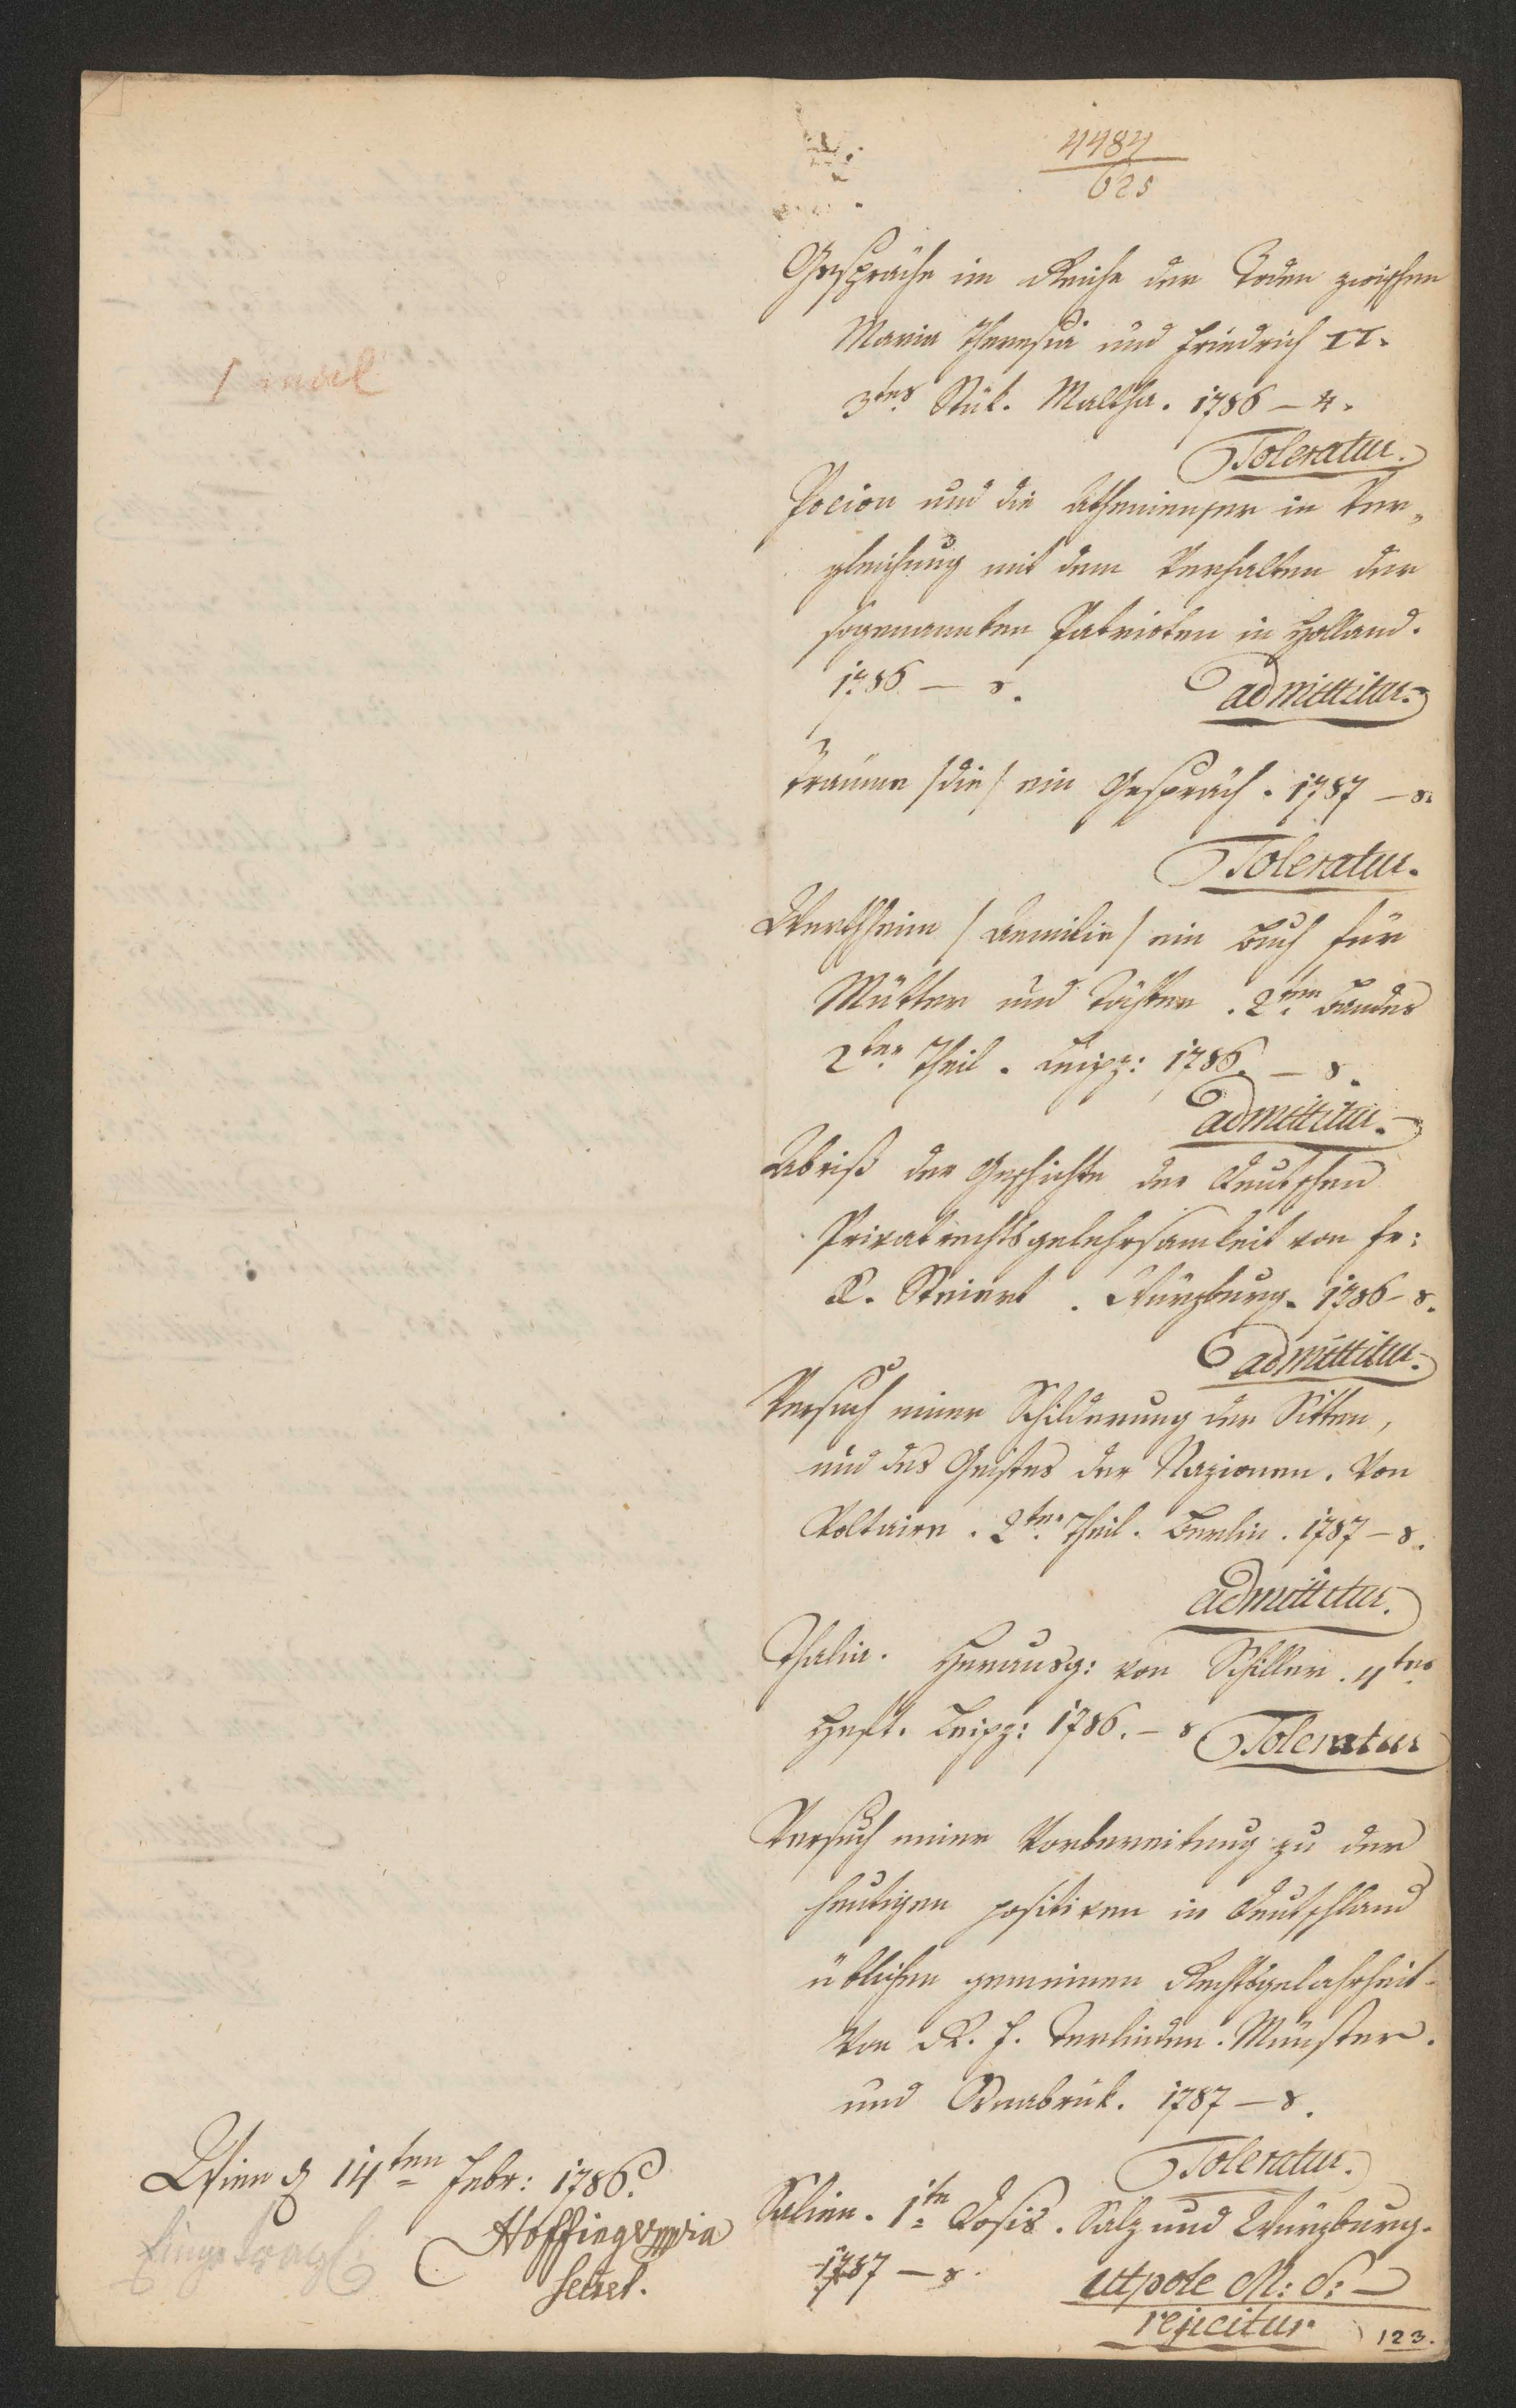 4484
625
1 mal
Gespräche im Reiche der Toden zwischen
Maria Theresia und Friedrich II.
3tes Stük. Maltha. 1786 – 4.
Toleratur.
Focion und die Athenienser in Ver„
gleichung mit dem Verhalten der
sogenannten Patrioten in Holland.
1786 – 8. admittitur.
Träume /die/ ein Gespräch. 1787 – 8.
Toleratur.
Wertheim /Aemilie/ ein Buch für
Mütter und Töchter. 2ten Bandes
2ter Theil. Leipz: 1786. – 8.
admittitur.
Abriß der Geschichte der Deutschen
Privatrechtsgelehrsamkeit von Fr:
K. Steinert. Würzburg. 1786 – 8.
admittitur.
Versuch einer Schilderung der Sitten,
und des Geistes der Nazionen. Von
Voltaire. 2ter Theil. Berlin. 1787 – 8.
admittitur.
Thalia. Herausg: von Schiller. 4tes
Heft. Leipz: 1786. – 8 Toleratur
Versuch einer Vorbereitung zu der
heutigen positiven in Deutschland
üblichen gemeinen Rechtsgelahrheit.
Von R. F. Terlinden. Münster.
und Osnabrük. 1787 – 8.
Toleratur.
Salien. 1te Dosis. Salz und Würzburg.
1787 – 8. utpote M: S:
rejicitur
123.
Wien d 14ten Febr: 1786.
Hoffinger
Secret.